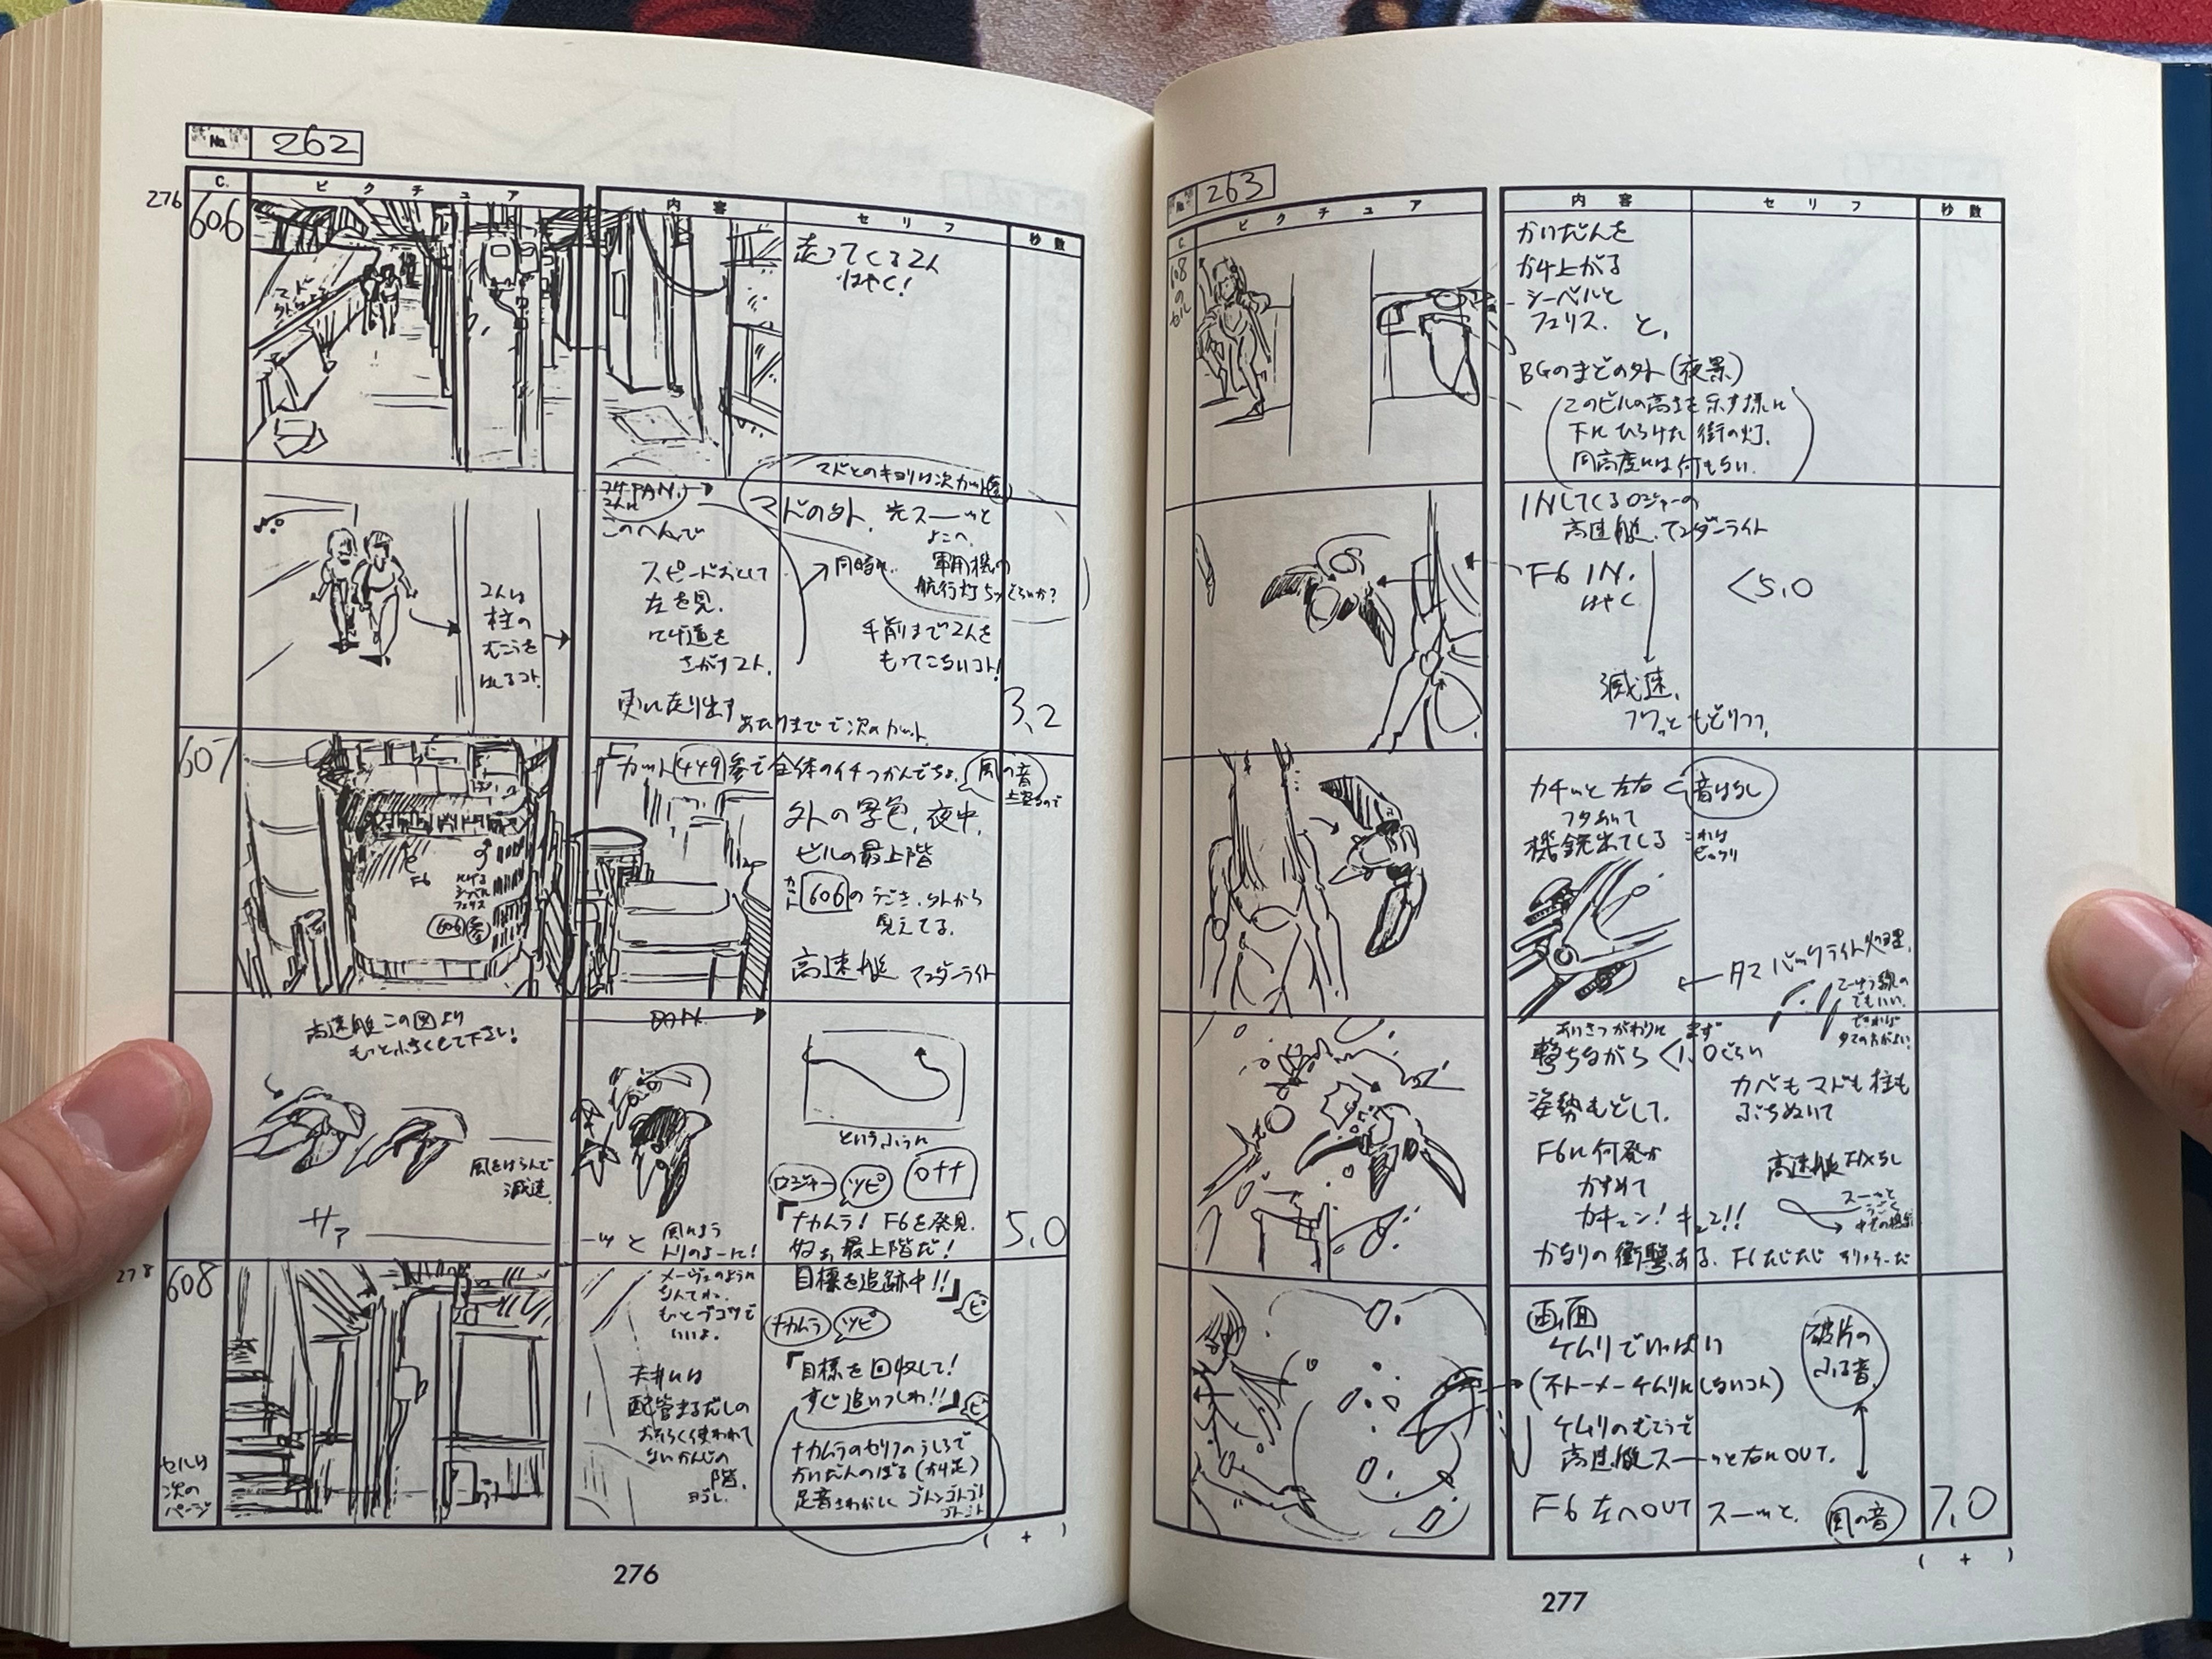 No. 262
276
C.
ピクチュア
内容
セリフ
秒数
606
走ってくる2人
はやく!
マド
2人は
柱の
むこうを
はしるコト.
マドとのキョリは次カット参
PAN.
2人
このへんで
スピードおとして
左を見.
にげ道を
さがす2人.
更に走り出す
あたりまでで次のカット.
マドの外. 光スーッと
よこへ.
同時に.
軍用機の
航行灯
手前まで2人を
もってこないコト!
3,2
607
カット449参で全体のイチつかんでちょ.
風の音
外の景色, 夜中.
ビルの最上階
カット606のうごき, 外から
見えてる.
高速艇
F6
にげる
シーベル
フェリス
606参
高速艇この図より
もっと小さくして下さい!
風をはらんで
減速.
サァ
ーッと
風のよう
トリのよーに!
というふうに
ロジャー
ツピ
Off
「ナカムラ! F6を発見.
最上階だ!
5,0
278
608
目標を追跡中!!」
ピ
メーヴェのように
もっとブコツで
いいよ.
ナカムラ
ツピ
「目標を回収して!
すぐ追いつくわ!!」
ピ
天井には
配管まるだしの
おそらく使われて
ないかんじの
階.
ヨゴし.
ナカムラのセリフのうしろで
かいだんのぼる(かけ足)
足音さわがしく ゴトンゴトゴト
ゴトゴト
セルは
次の
ページ
( + )
276
No. 263
C.
ピクチュア
内容
セリフ
秒数
608
のセル
かいだんを
かけ上がる
シーベルと
フェリス. と,
BGのまどの外(夜景)
(このビルの高さを示す様に
下にひろけた街の灯.
同高度には何もない.)
INしてくるロジャーの
高速艇.
F6 IN.
はやく
<5,0
減速.
フワっともどりつつ.
カチッと左右
フタあいて
機銃出てくる
音はなし
これは
ビックリ
タマ バックライト処理.
でもいい.
できれば
タマの方がよい.
あいさつがわりに まず
撃ちながら <1,0ぐらい
姿勢もどして.
カベもマドも柱も
ぶちぬいて
F6に何発か
かすめて
カキューン! キュン!!
高速艇FIXなし
スーッと
うごく
かなりの衝撃ある. F6たじたじ
画面
ケムリでいっぱい
(ストーメーケムリにしないコト)
破片の
ふる音.
ケムリのむこうで
高速艇スーッと右にOUT.
F6 左へOUT スーッと.
風の音
7,0
( + )
277